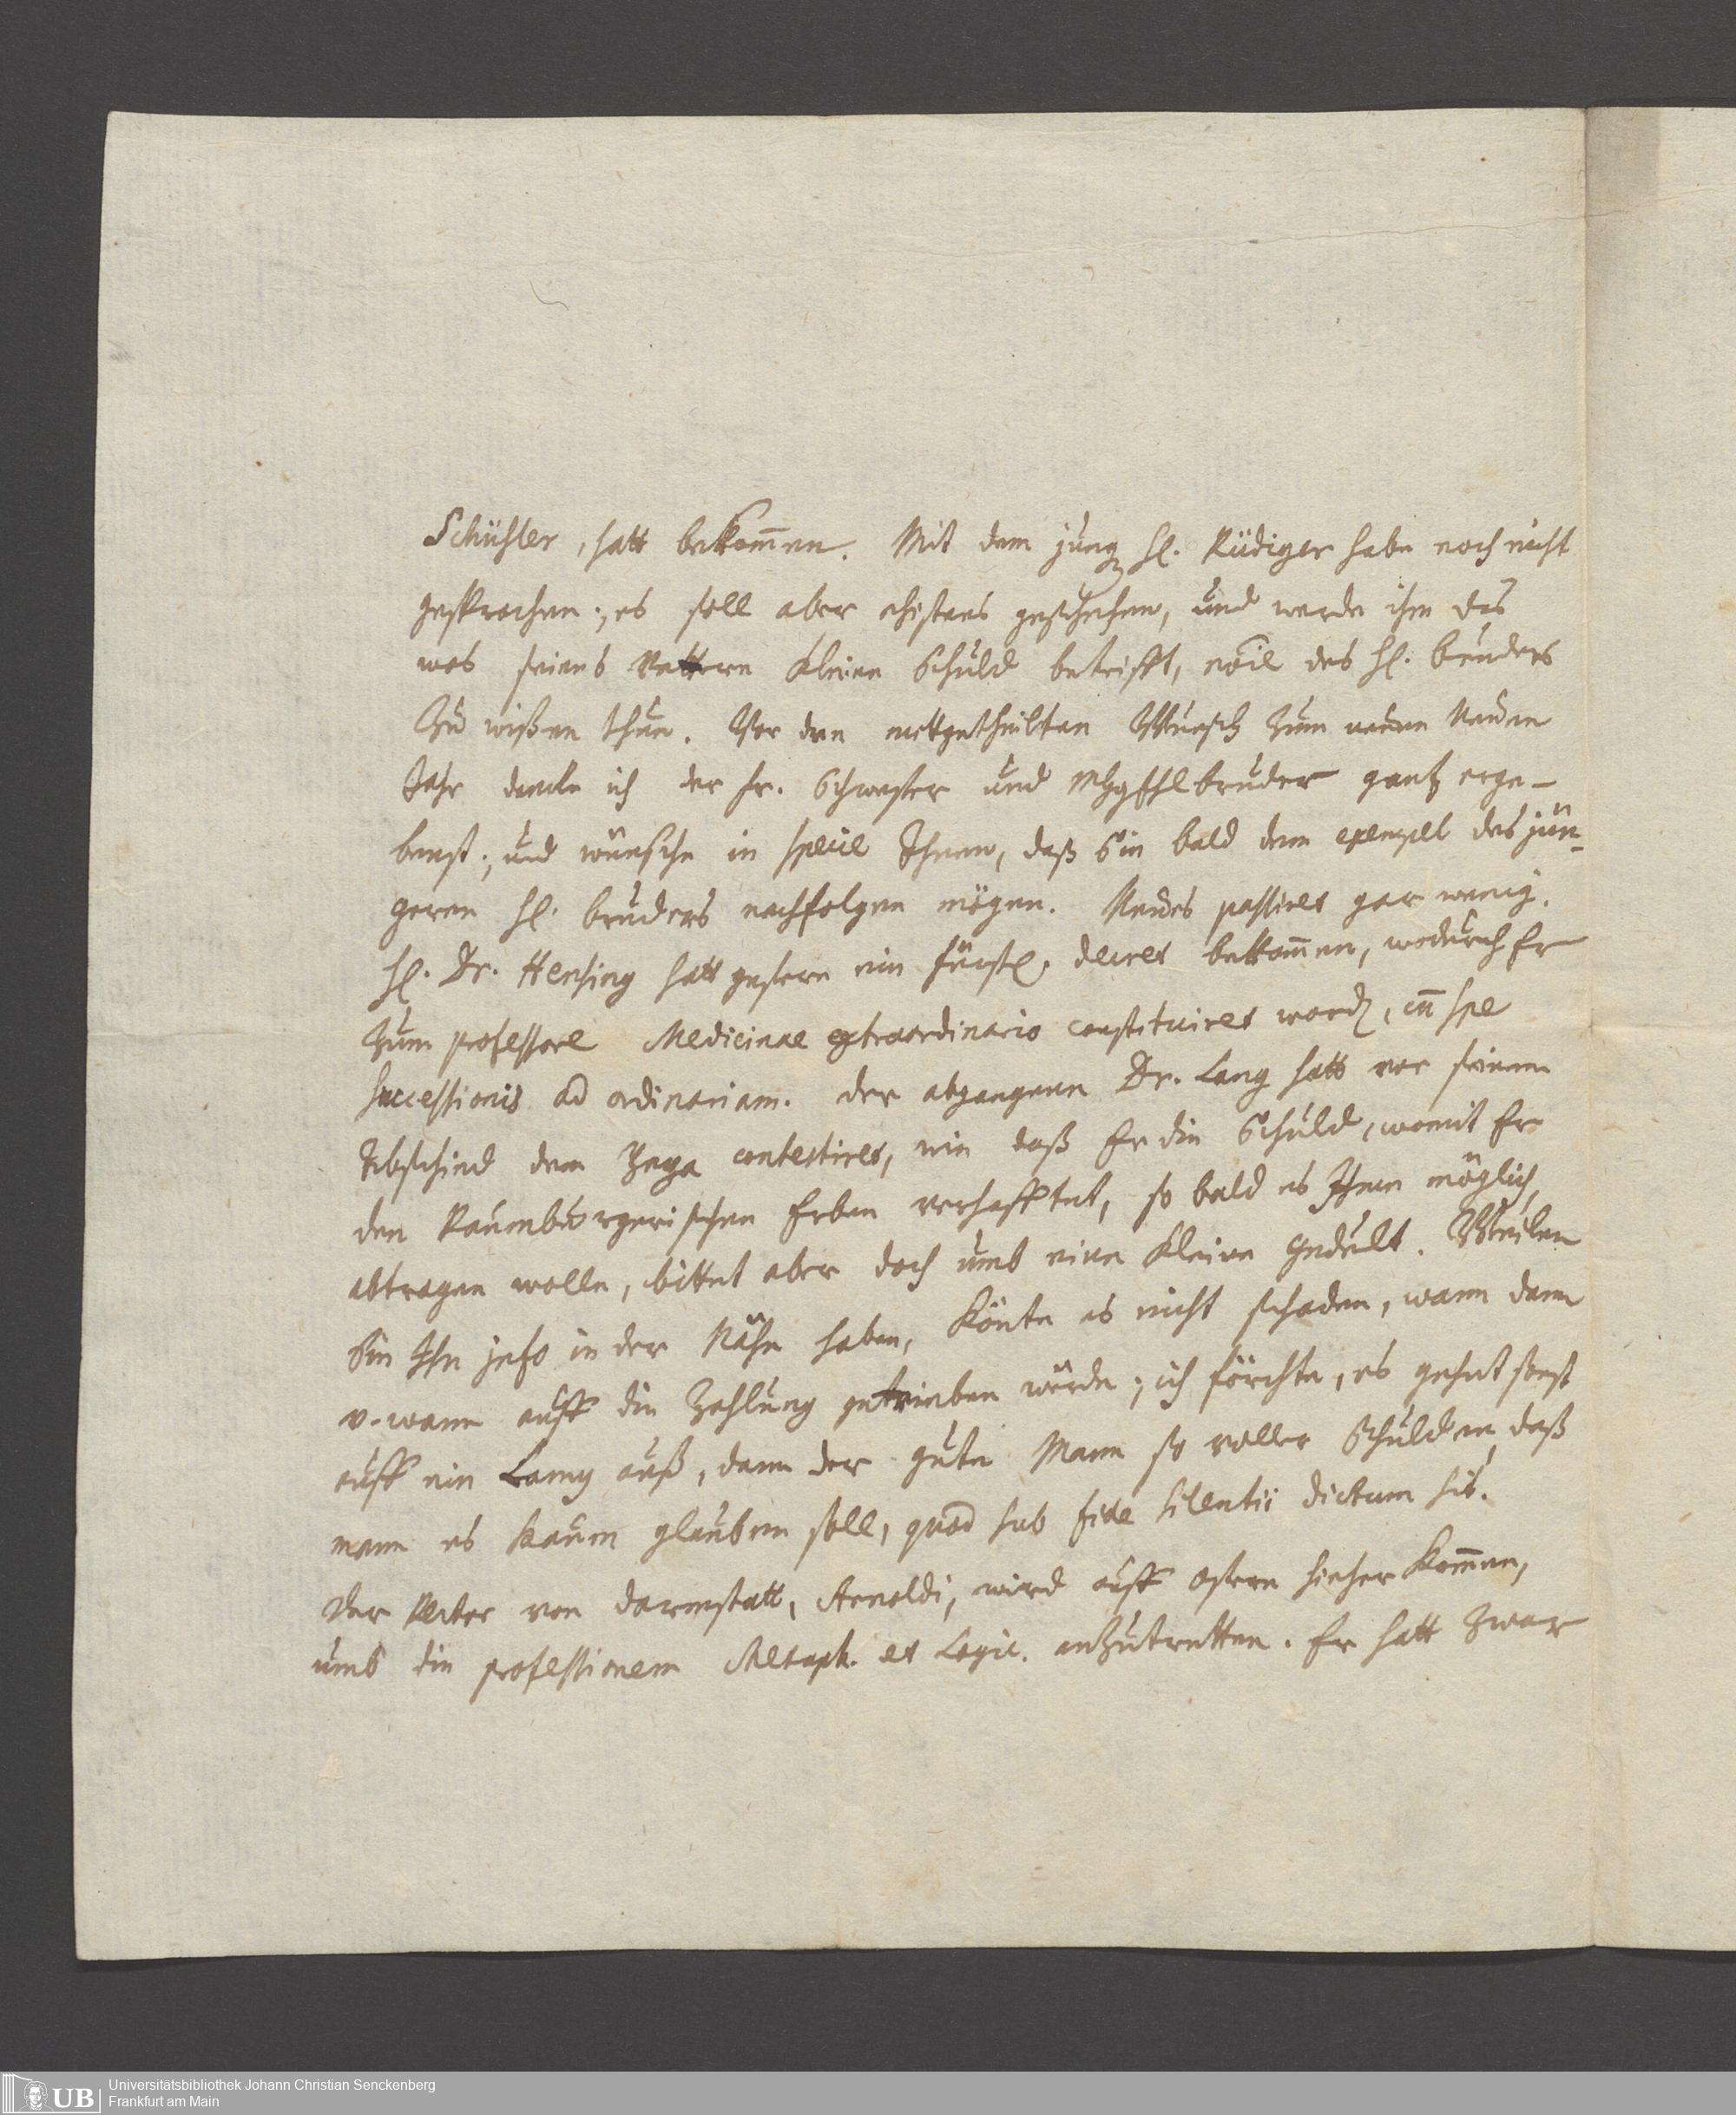 Schüsler, hatt bekom̄en. Mit dem jung Hl. Rüdiger habe noch nicht
gesprochen; es soll aber ehistens geschehen, und werde ihm das
was seines Vattern kleine Schuld betrifft, nōie des Hl. bruders
zu wißen thun. Vor den mitgetheilten Wunsch zum neuen
Jahr dancke ich der Fr. Schwester und bruder gantz erge-
benst; und wünsche in specie Ihnen, daß Sie bald dem exempel des jün-
geren Hl. bruders nachfolgen mögen. Neues passiret gar wenig.
Hl. Dr. Hensing hatt gestern ein fürstl. decret bekom̄en, wodurch Er
zum professore Medicinae extraordinario constituiret word, cū spe
successionis ad ordinariam. Der abgangene Dr. Lang hatt vor seinem
Abschied dem contestiret, wie daß Er die Schuld, womit Er
den Raumburgerischen Erben verhafftet, so bald es Ihme möglich,
abtragen wolle, bittet aber doch umb eine kleine gedult. Weilen
Sie Ihn jetzo in der Nähe haben, könte es nicht schaden, wann dann
v. wann auff die Zahlung getrieben würde; ich förchte, es gehet sonst
auff ein Lamy auß, dann der gute Mann so voller Schulden, daß
mann es kaum glauben soll, quod sub fide silentii dictum sit.
Der Rector von Darmstatt, Arnoldi, wird auff Ostern hieher kom̄en,
umb die professionem Metaph. et Logic. anzutretten. Er hatt zwar
Universitätsbibliothek Johann Christian Senckenberg
Frankfurt am Main
UB